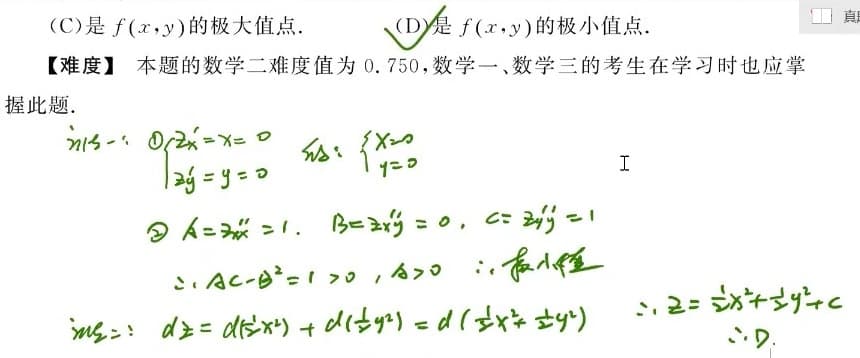 (C)是 f(x,y)的极大值点. (D)是 f(x,y)的极小值点.
【难度】 本题的数学二难度值为 0.750,数学一、数学三的考生在学习时也应掌
握此题.
法一: ① { z'x = x = 0 解: { x=0
z'y = y = 0 y=0
② A = z''xx = 1. B = z''xy = 0, C = z''yy = 1
∴ AC-B² = 1 > 0 , A>0 ∴ 极小值
法二: dz = d(½x²) + d(½y²) = d(½x²+½y²) ∴ z = ½x²+½y²+C
∴ D.